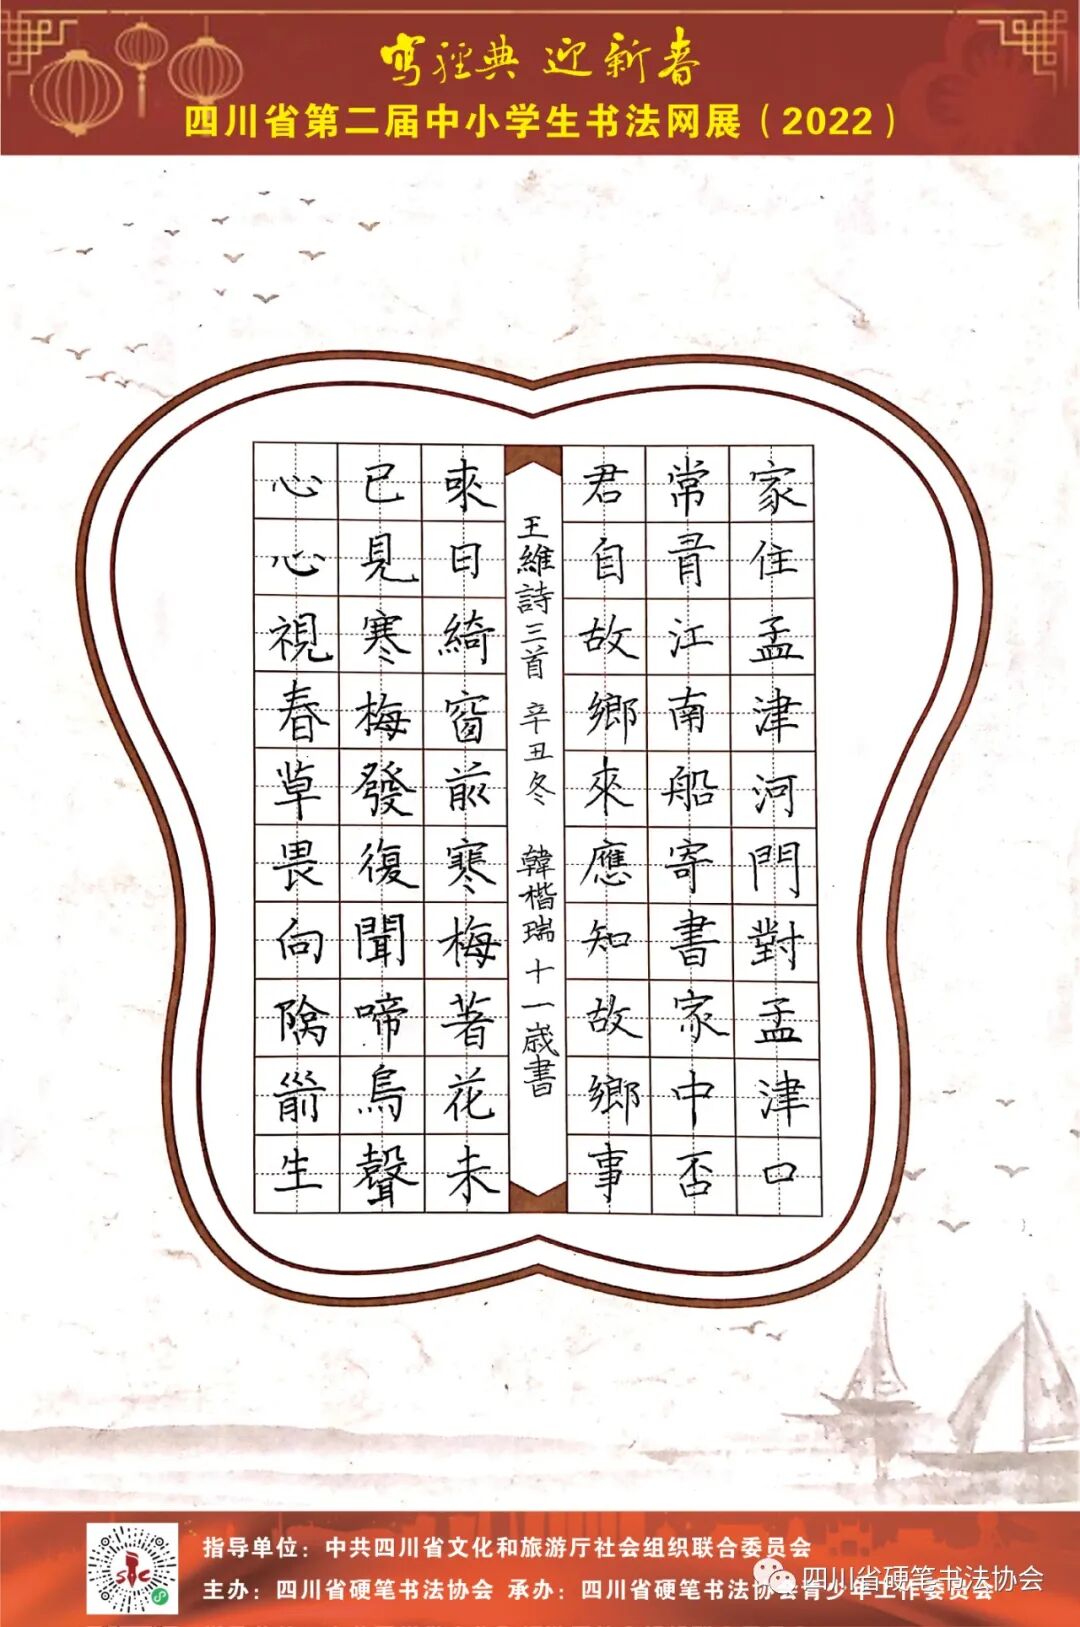 寫經典 迎新春
四川省第二届中小学生书法网展（2022）
家住孟津河門對孟津口
常有江南船寄書家中否
君自故鄉來應知故鄉事
王維詩三首 辛丑冬 韓楷瑞十一歲書
來日綺窗前寒梅著花未
已見寒梅發復聞啼鳥聲
心心視春草畏向階前生
指导单位：中共四川省文化和旅游厅社会组织联合委员会
主办：四川省硬笔书法协会 承办：四川省硬笔书法协会青少年工作委员会
四川省硬笔书法协会